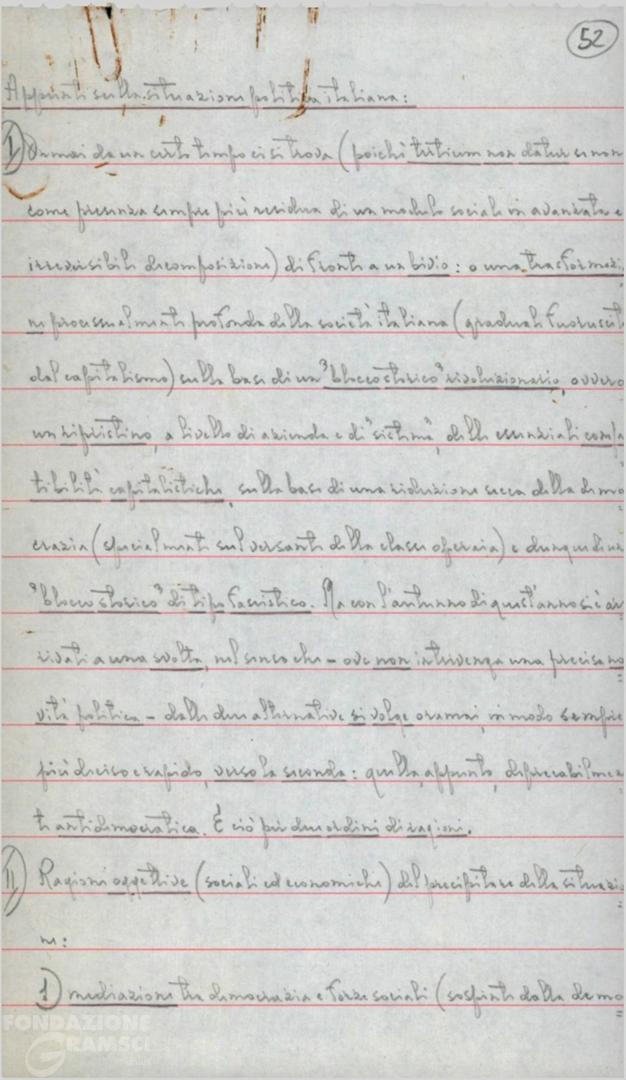 52
Appunti sulla situazione politica italiana:
I) Ormai da un certo tempo ci si trova (poiché tertium non datur se non
come presenza sempre più residua di un modulo sociale in avanzata e
irreversibile decomposizione) di fronte a un bivio: o una trasformazio
ne processualmente profonda della società italiana (graduale fuoruscita
dal capitalismo) sulla base di un "blocco storico" rivoluzionario, ovvero
un ripristino, a livello di azienda e di "sistema", delle essenziali compa
tibilità capitalistiche, sulla base di una riduzione secca della demo=
crazia (specialmente sul versante della classe operaia) e dunque di un
"blocco storico" di tipo fascistico. Ma con l'autunno di quest'anno si è ar
rivati a una svolta, nel senso che – ove non intervenga una precisa no=
vità politica – dalle due alternative si volge oramai, in modo sempre
più deciso e rapido, verso la seconda: quella, appunto, deprecabilmen=
te antidemocratica. E ciò per due ordini di ragioni.
II) Ragioni oggettive (sociali ed economiche) del precipitare della situazio=
ne:
1) mediazione tra democrazia e forze sociali (sospinte dalla demo=
FONDAZIONE
GRAMSCI